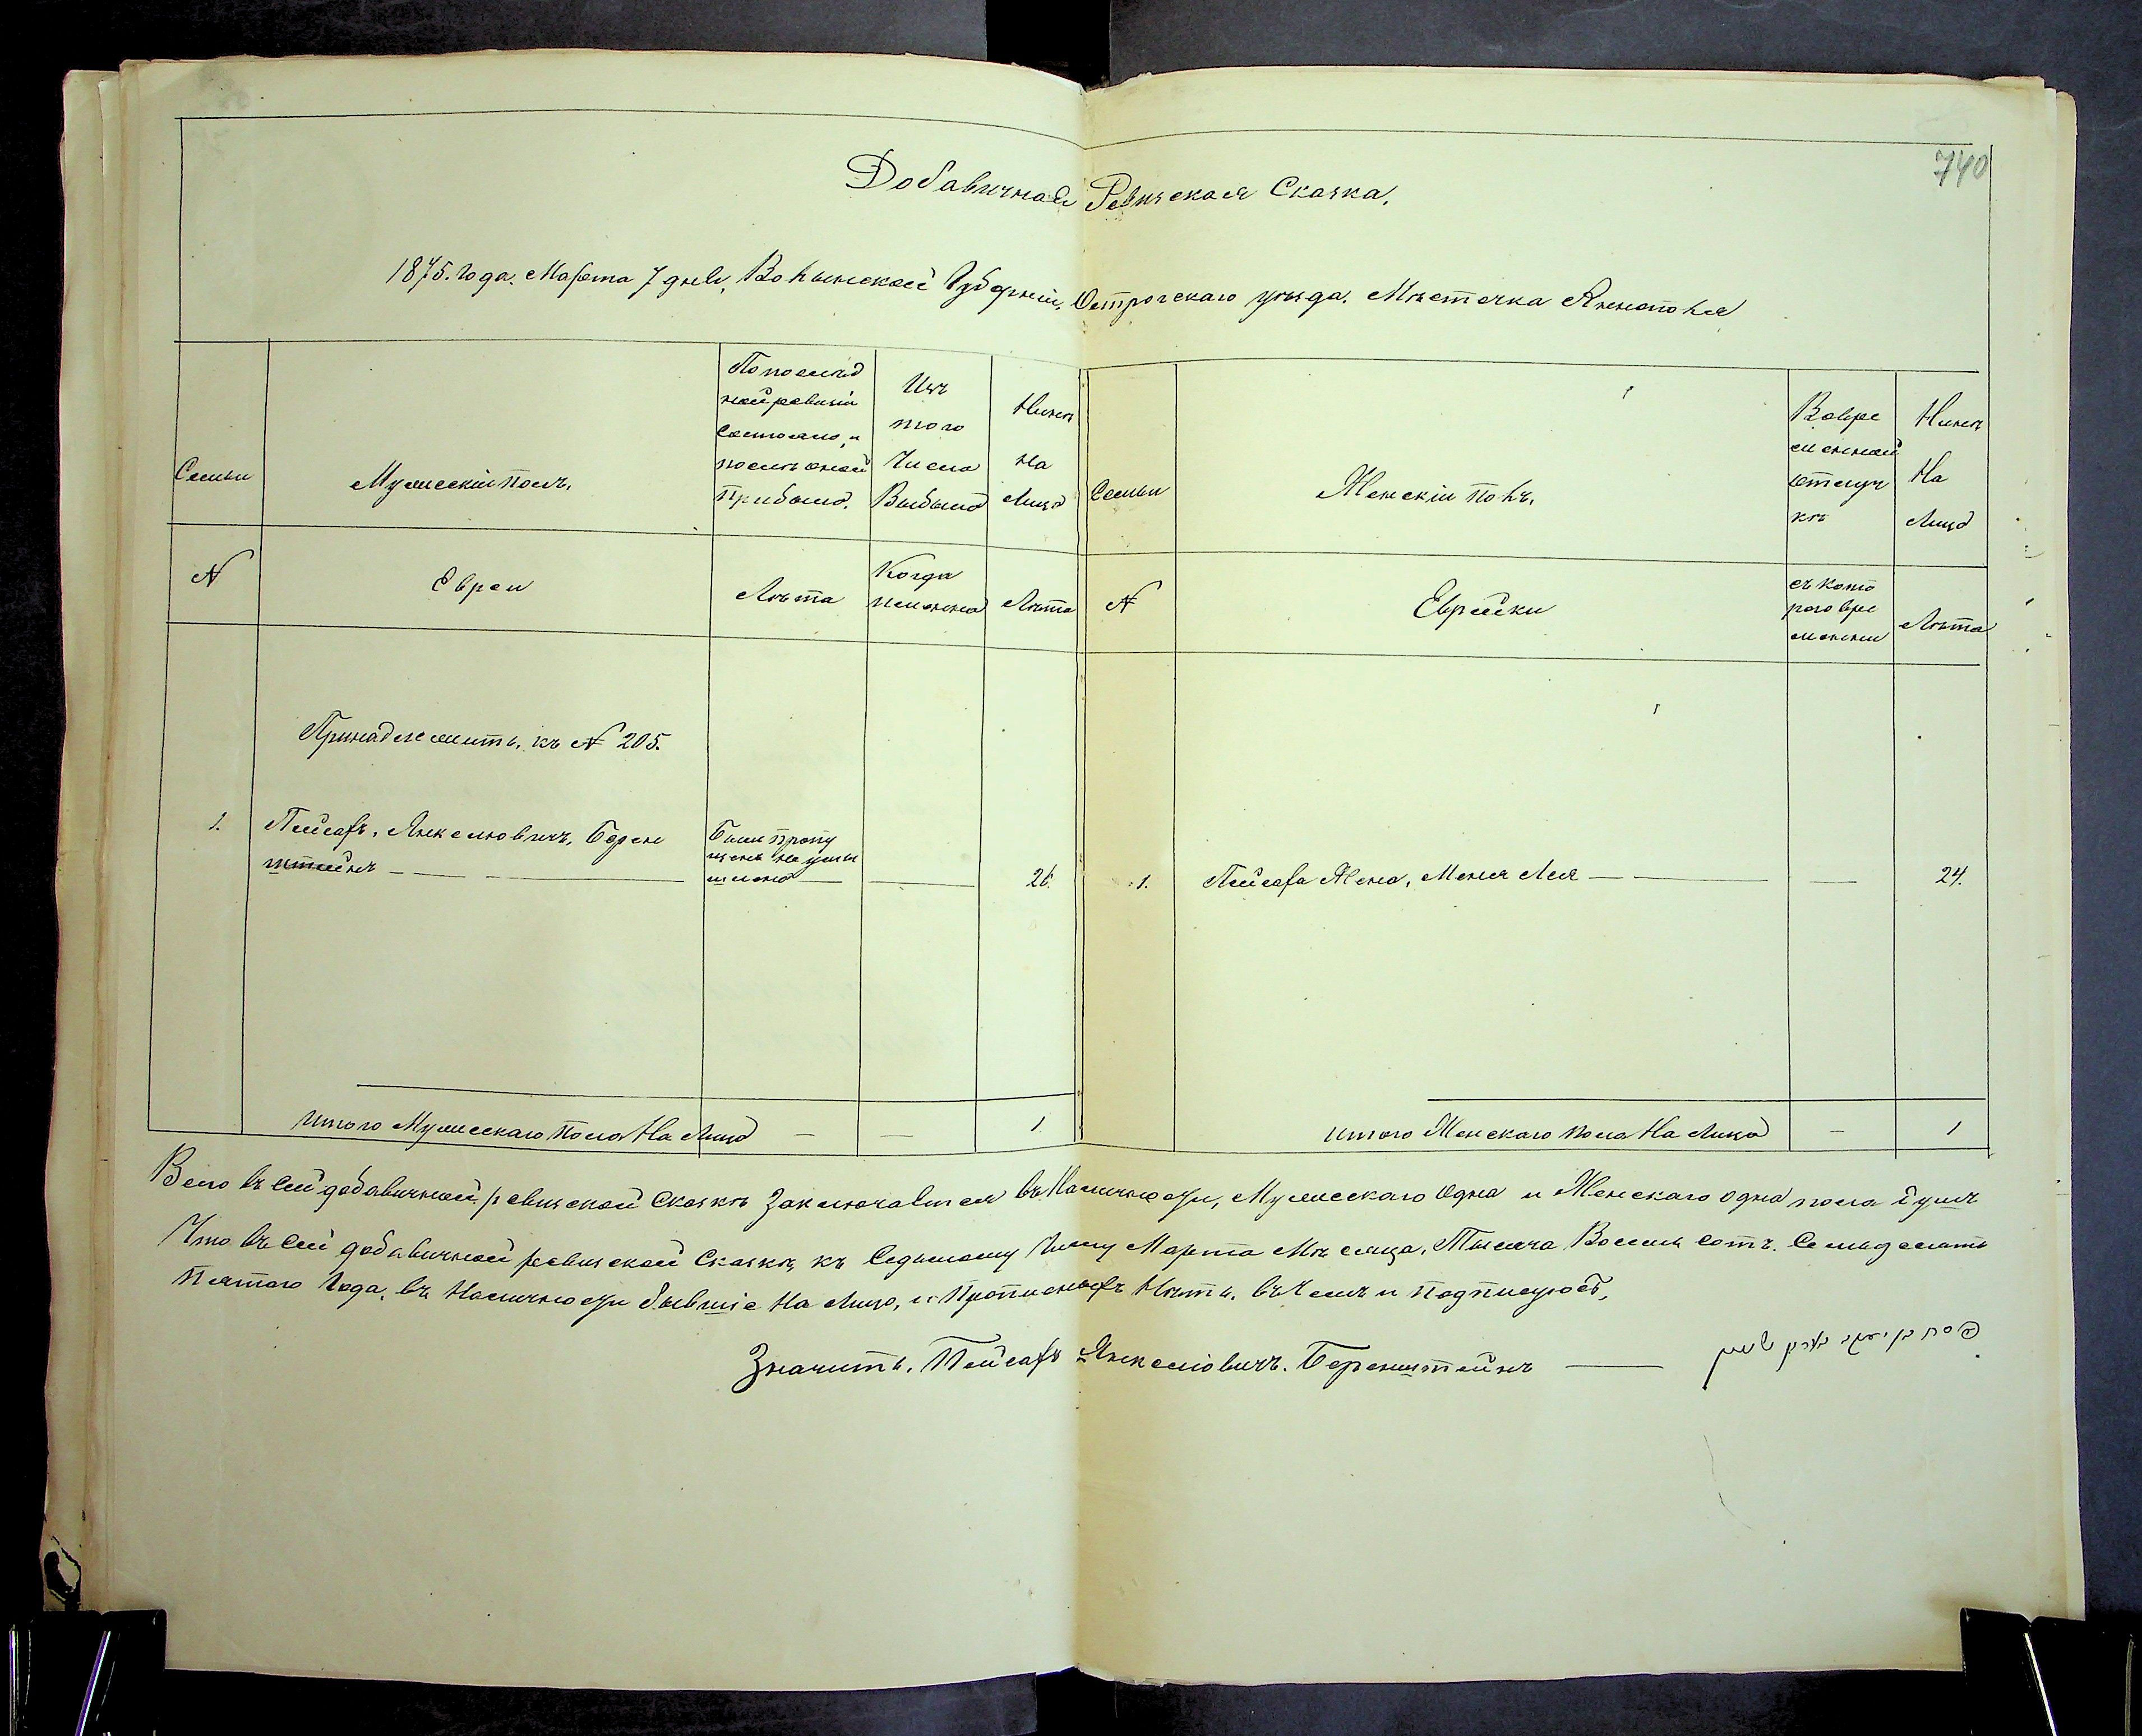 740
Добавичная Ревиская Сказка.
1875. Года. Марта 7 дня, Волынской Губерніи, Острогскаго уѣзда. Мѣстечка Аннополя
Семьи
Мужескій полъ.
По послѣд
ней ревизіи
Состояло, и
послѣ оной
Прибыло.
Изъ
того
Числа
Выбыло
Нинѣ
на
Лицо
Семьи
Женскій Полъ.
Вовре
менной
отлуч
кѣ
Нинѣ
На
Лицо
№
Евреи
Лѣта
Когда
именно
Лѣта
№
Еврейки
съ кото
раго вре
менни
Лѣта
Принадлежитъ, къ № 205.
1. Пейсахъ, Янкелювичъ, Берен
штейнъ
Былъ пропу
щенъ не умы
шлено
26.
1. Пейсаха Жена, Меня Лея 24.
Итого Мужескаго пола На Лицо 1
Итого Женскаго пола На Лицо 1
Всего въ Сей добавичной ревиской Сказкѣ Заключается въ Наличносзи, Мужескаго Одна и Женскаго одна пола душъ
Что въ Сей добавичной ревиской Сказкѣ къ Седьмому Числу Марта Мѣсяца, Тысяча Восемь сотъ. Семьдесятъ
Пятого Года, въ Наличносзи бывшіе На Лицо, и Прописныхъ Нѣтъ, въ Чемъ и подписуюсь,
Значитъ, Пейсахъ Янкеліовичъ. Беренштейнъ